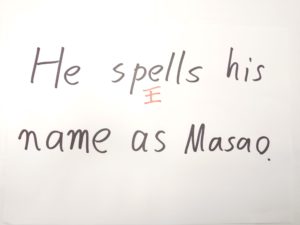 He spells his
王
name as Masao.